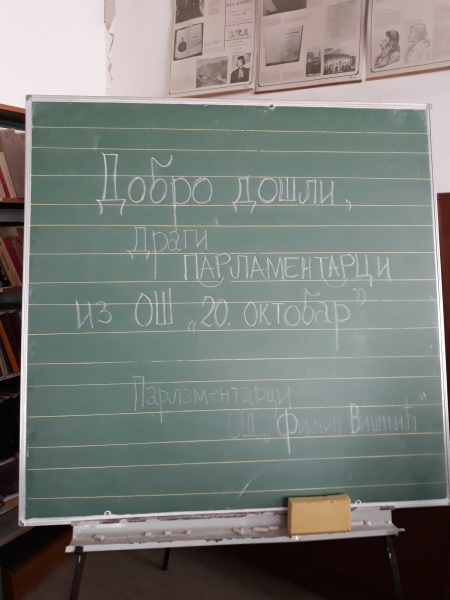 Добро дошли,
Драги
ПАРЛАМЕНТАРЦИ
из ОШ „20. октобар”
Парламентарци
ОШ „Филип Вишњић”